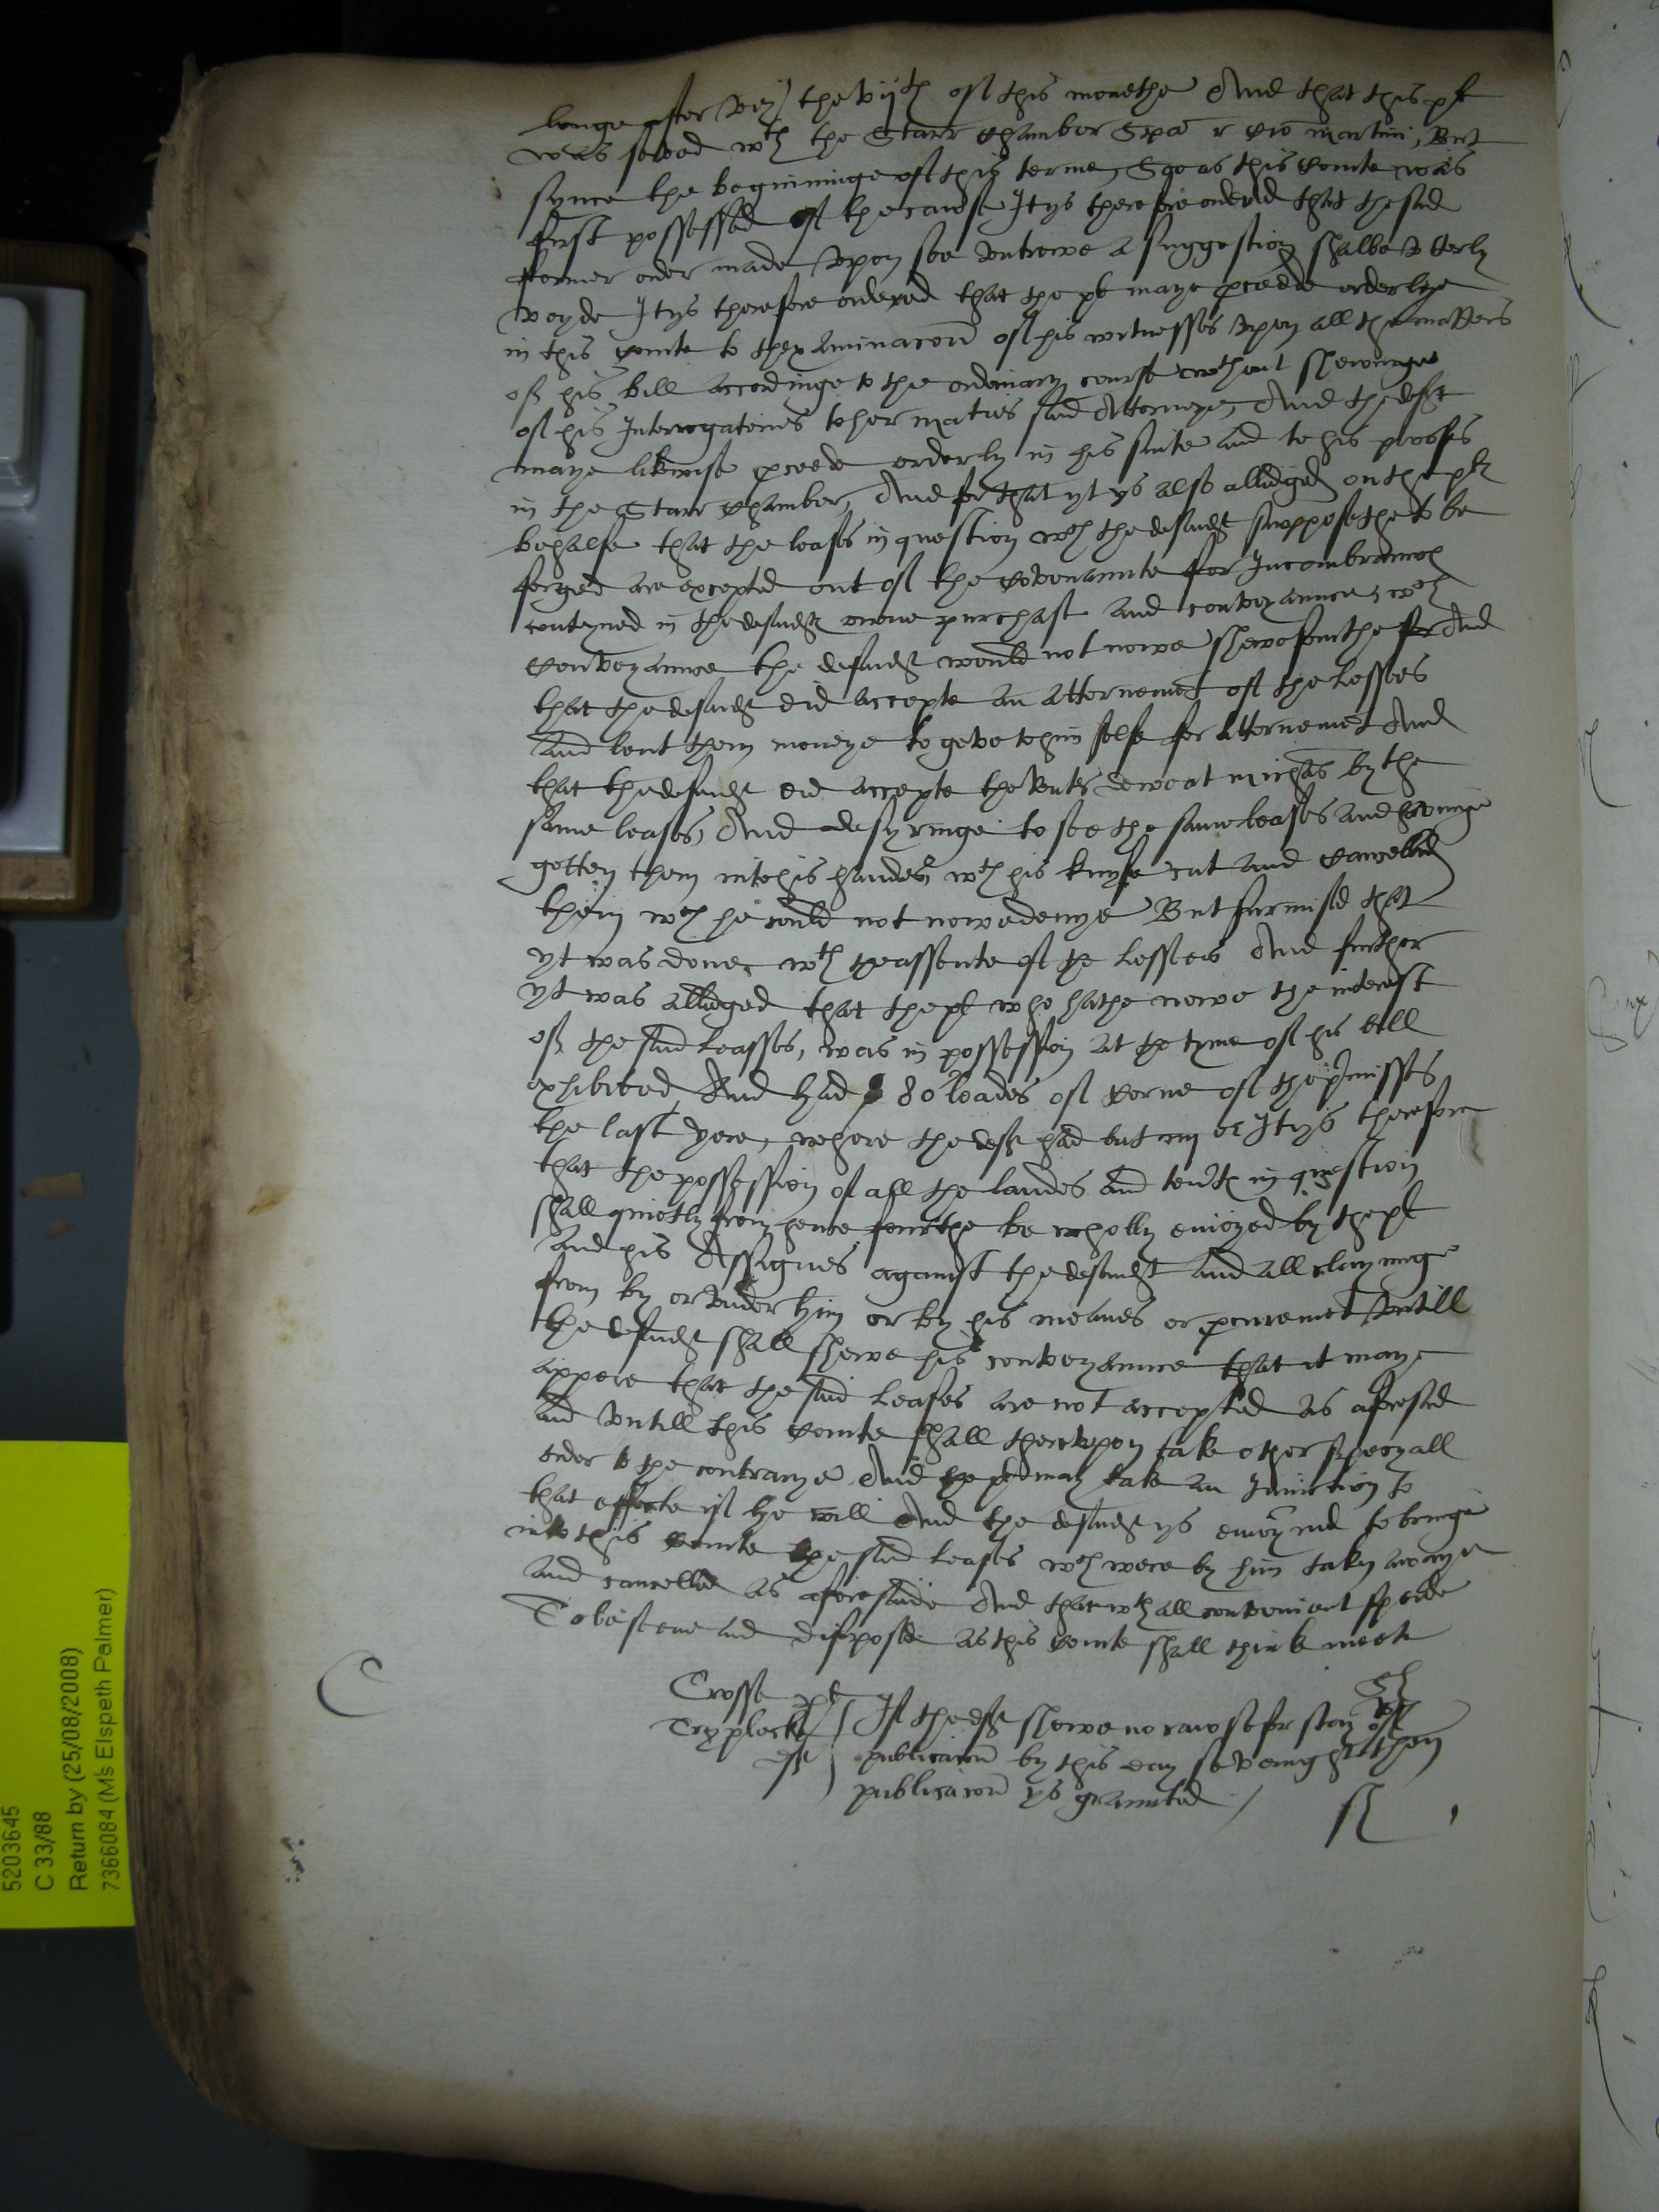 longe after viz the vijth of this monethe And that this pl
was served wth the Starr Chamber Spa r Cro martini, But
synce the beginninge of this terme, Soo as this Courte was
first possessed of the cause It ys therefore ordered that the said
former order made vpon soe vntrewe a suggestion shalbe vtterly
voyde It ys therefore ordered that the pl maye procede orderlye
in this Courte to thexaminacon of his witnesses vpon all the matters
of his bill accordinge to the ordinary course wthout shewinge
of his Interrogatories to her maties said Attorneye, And the deft
maye likewise procede orderly in his suite and to his prooffes
in the Starr Chamber, And for that yt ys also alledged on the pls
behalfe that the leases in question wch the defendt supposethe to be
forged are excepted out of the Covenannte for Incombrances
conteyned in the defendts owne purchase and conveyannce, wch
Conveyannce the defendt would not nowe shewe fourthe And
that the defendt did accepte an attornemt of the Lessees
and lent them moneye to geve to him selfe for Attornemt And
that the defendt did accepte the Rents dewe at michas by the
same leases, And desyringe to see the same leases and havinge
gotten them into his handes, wth his knyfe cut and Cancelled
them wch he could not nowe denye But surmised that
yt was done wth the assente of the Lessees And further
yt was alledged that the pl who hathe nowe the interest
of the said Leasses, was in possession at the tyme of his bill
exhibited And had 80 loades of Corne of the pmisses
the last yere, where the deft had but iiij or It ys therefore
that the possession of all the landes and tents in question
shall quietly from hence fourthe be wholly enioyed by the pl
and his Assignes against the defendt and all clayminge
from by or vnder him or by his meanes or procuremt vntill
the defendt shall shewe his conveyannce that it maye
appere that the said Leases are not accepted as aforesaid
and vntill this Courte shall therevpon take other speciall
order to the contrarye And the pl may take an Iniunction to
that effecte if he will And the defendt ys enioyned to bringe
into this Courte the said Leases wch were by him taken awaye
and cancelled as aforesaide And that wth all convenient speede
To be seene and disposed as this Courte shall think meete
Crosse pl
Tryplocke
deft
If the deft shewe no cause for stay of
publicacon by this day sevenight then
publicacon ys graunted
5203645
C 33/88
Return by (25/08/2008)
7366084 (Ms Elspeth Palmer)